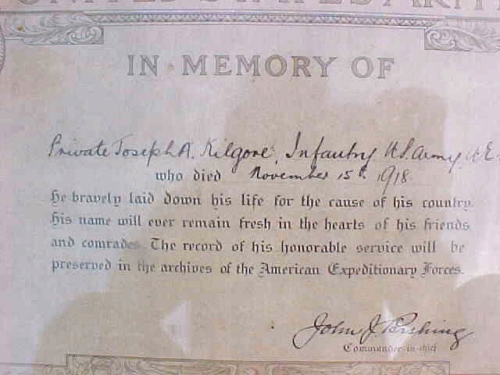 UNITED STATES ARMY
IN MEMORY OF
Private Joseph A. Kilgore, Infantry, U.S. Army, A.E.
who died November 15th, 1918.
He bravely laid down his life for the cause of his country.
His name will ever remain fresh in the hearts of his friends
and comrades. The record of his honorable service will be
preserved in the archives of the American Expeditionary Forces.
John J. Pershing
Commander-in-chief